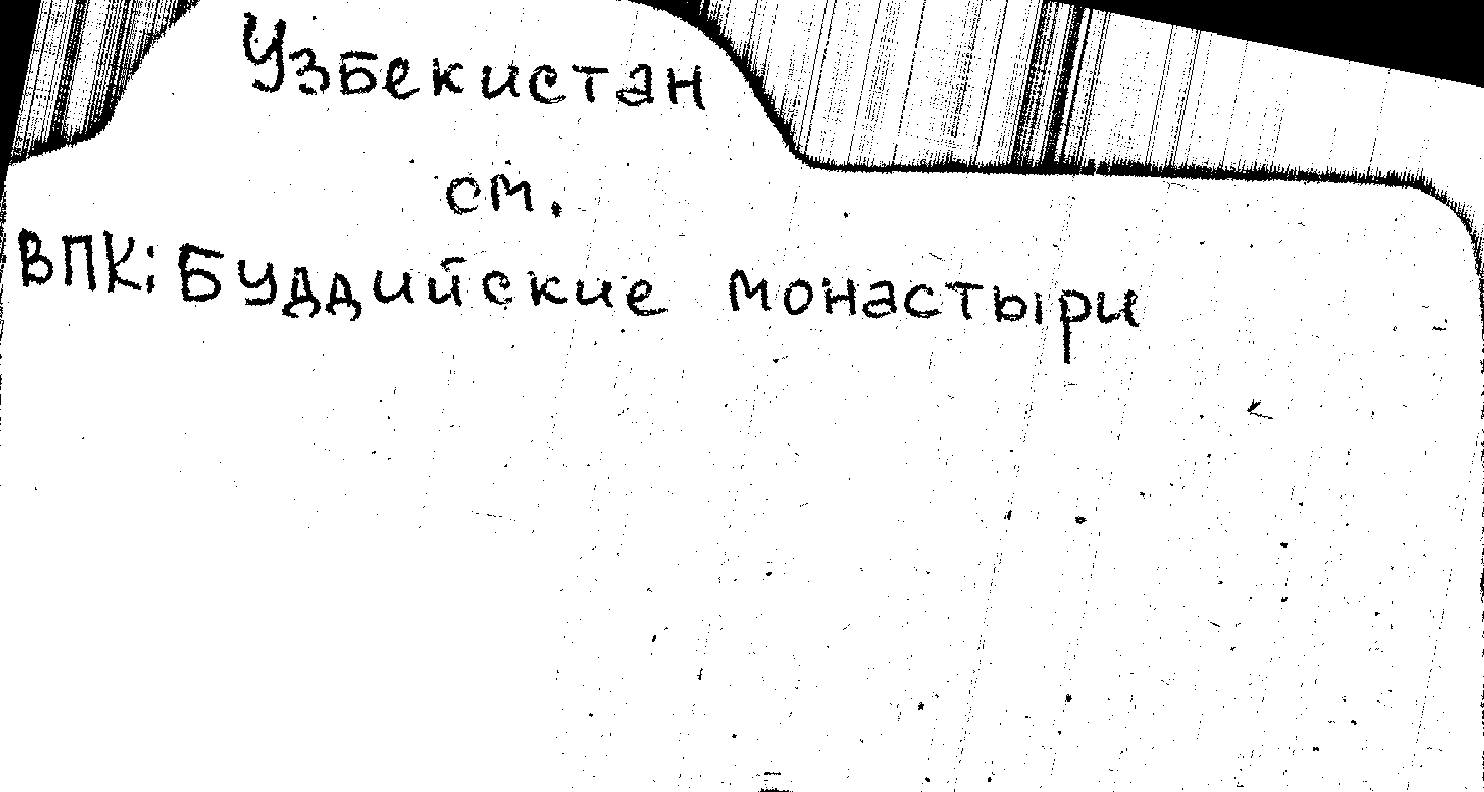 Узбекистан
см.
ВПК: Буддийские монастыри